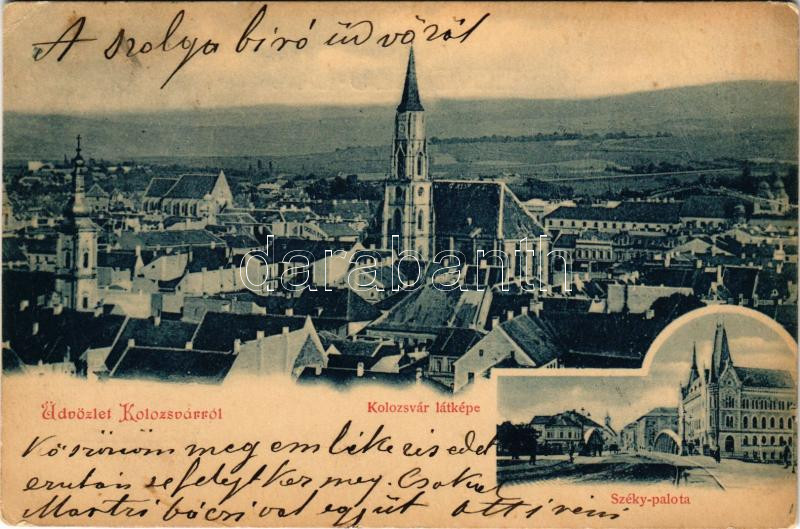 A szolga biró üdvöről
darabanth
Üdvözlet Kolozsvárról
Kolozsvár látképe
Köszönöm meg emlékezésedet
ezután se felejtkez meg. Csókol
Martzi bácsival együt Otti néni
Széky-palota